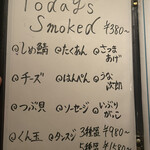 Today's
Smoked ¥380~
◎しめ鯖 ◎たくあん ◎さつまあげ
◎チーズ ◎はんぺん ◎うな次郎
◎つぶ貝 ◎ソーセージ ◎いぶりがっこ
◎くん玉 ◎タンスジ 3種盛 ¥980~
5種盛 ¥1580~